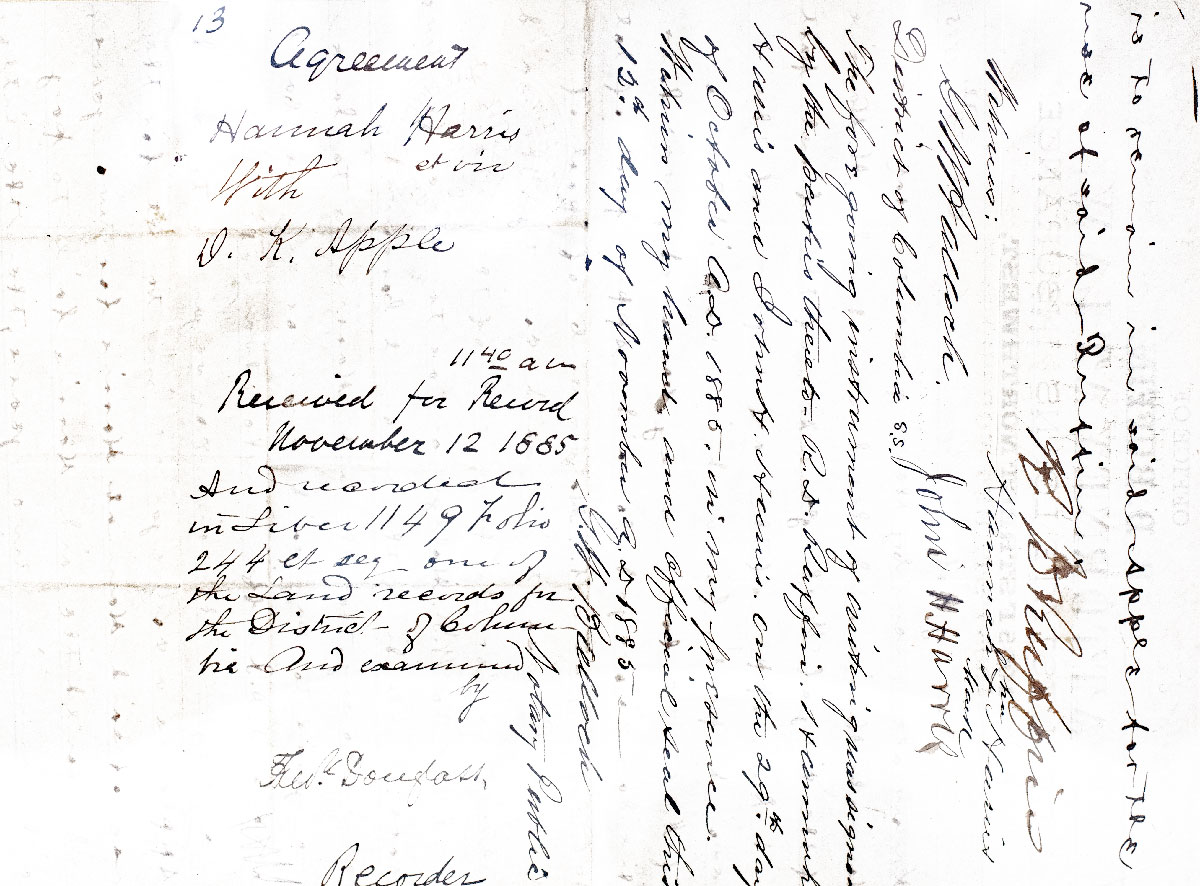 13
Agreement
Hannah Harris
et vir
With
D. K. Apple
11 40 am
Received for Record
November 12 1885
And recorded
in Liber 1149 Folio
244 et seq one of
the Land records for
the District of Colum
bia And examined
by
Fredk Douglass
Recorder
is to remain in said Apple for the
use of said
Witness:
Hannah Harris
her
mark
G W Balloch.
John H Harris
District of Columbia S.S.
The foregoing instrument of writing was signed
by the parties thereto R. D. Ruffin. Hannah
Harris and John H. Harris. on the 29th. day
of October A.D. 1885. in my presence.
Witness my hand and official seal this
12th. day of November A.D 1885
G. W. Balloch
Notary Public